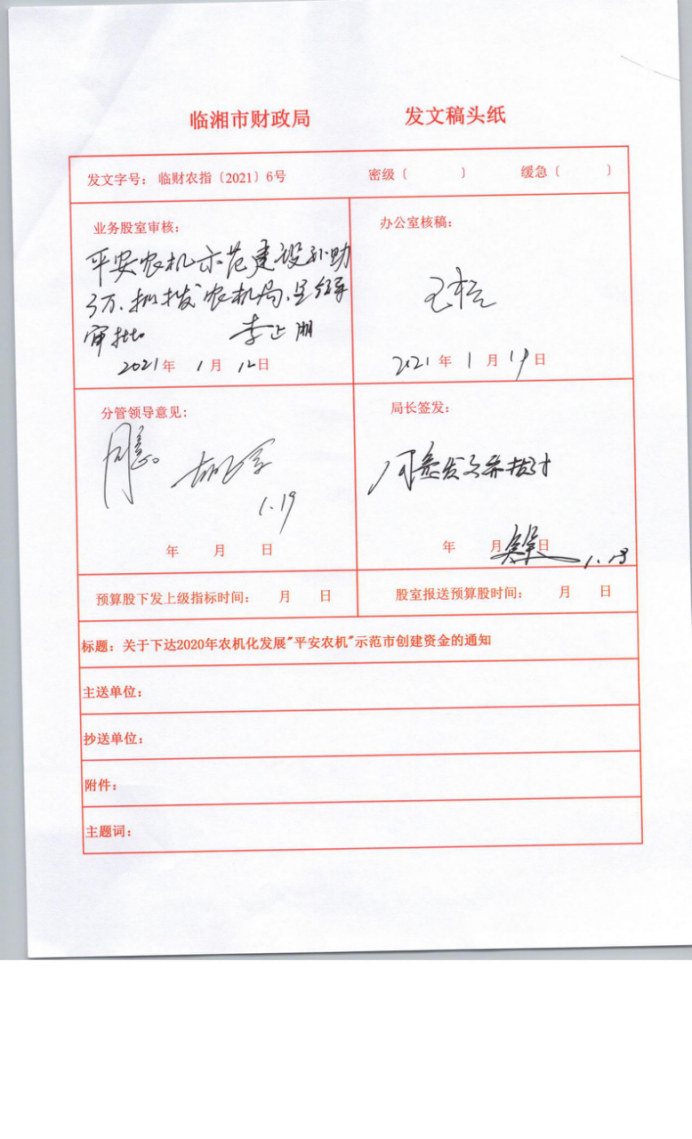 临湘市财政局 发文稿头纸
发文字号：临财农指〔2021〕6号 密级〔 〕 缓急〔 〕
业务股室审核：
平安农机示范建设补助
3万.拟拨农机局.呈领导
审批。 李正朋
2021年1月12日
办公室核稿：
2021年1月19日
分管领导意见：
同意。
1.19
年 月 日
局长签发：
同意发
年 月 日
预算股下发上级指标时间： 月 日
股室报送预算股时间： 月 日
标题：关于下达2020年农机化发展"平安农机"示范市创建资金的通知
主送单位：
抄送单位：
附件：
主题词：